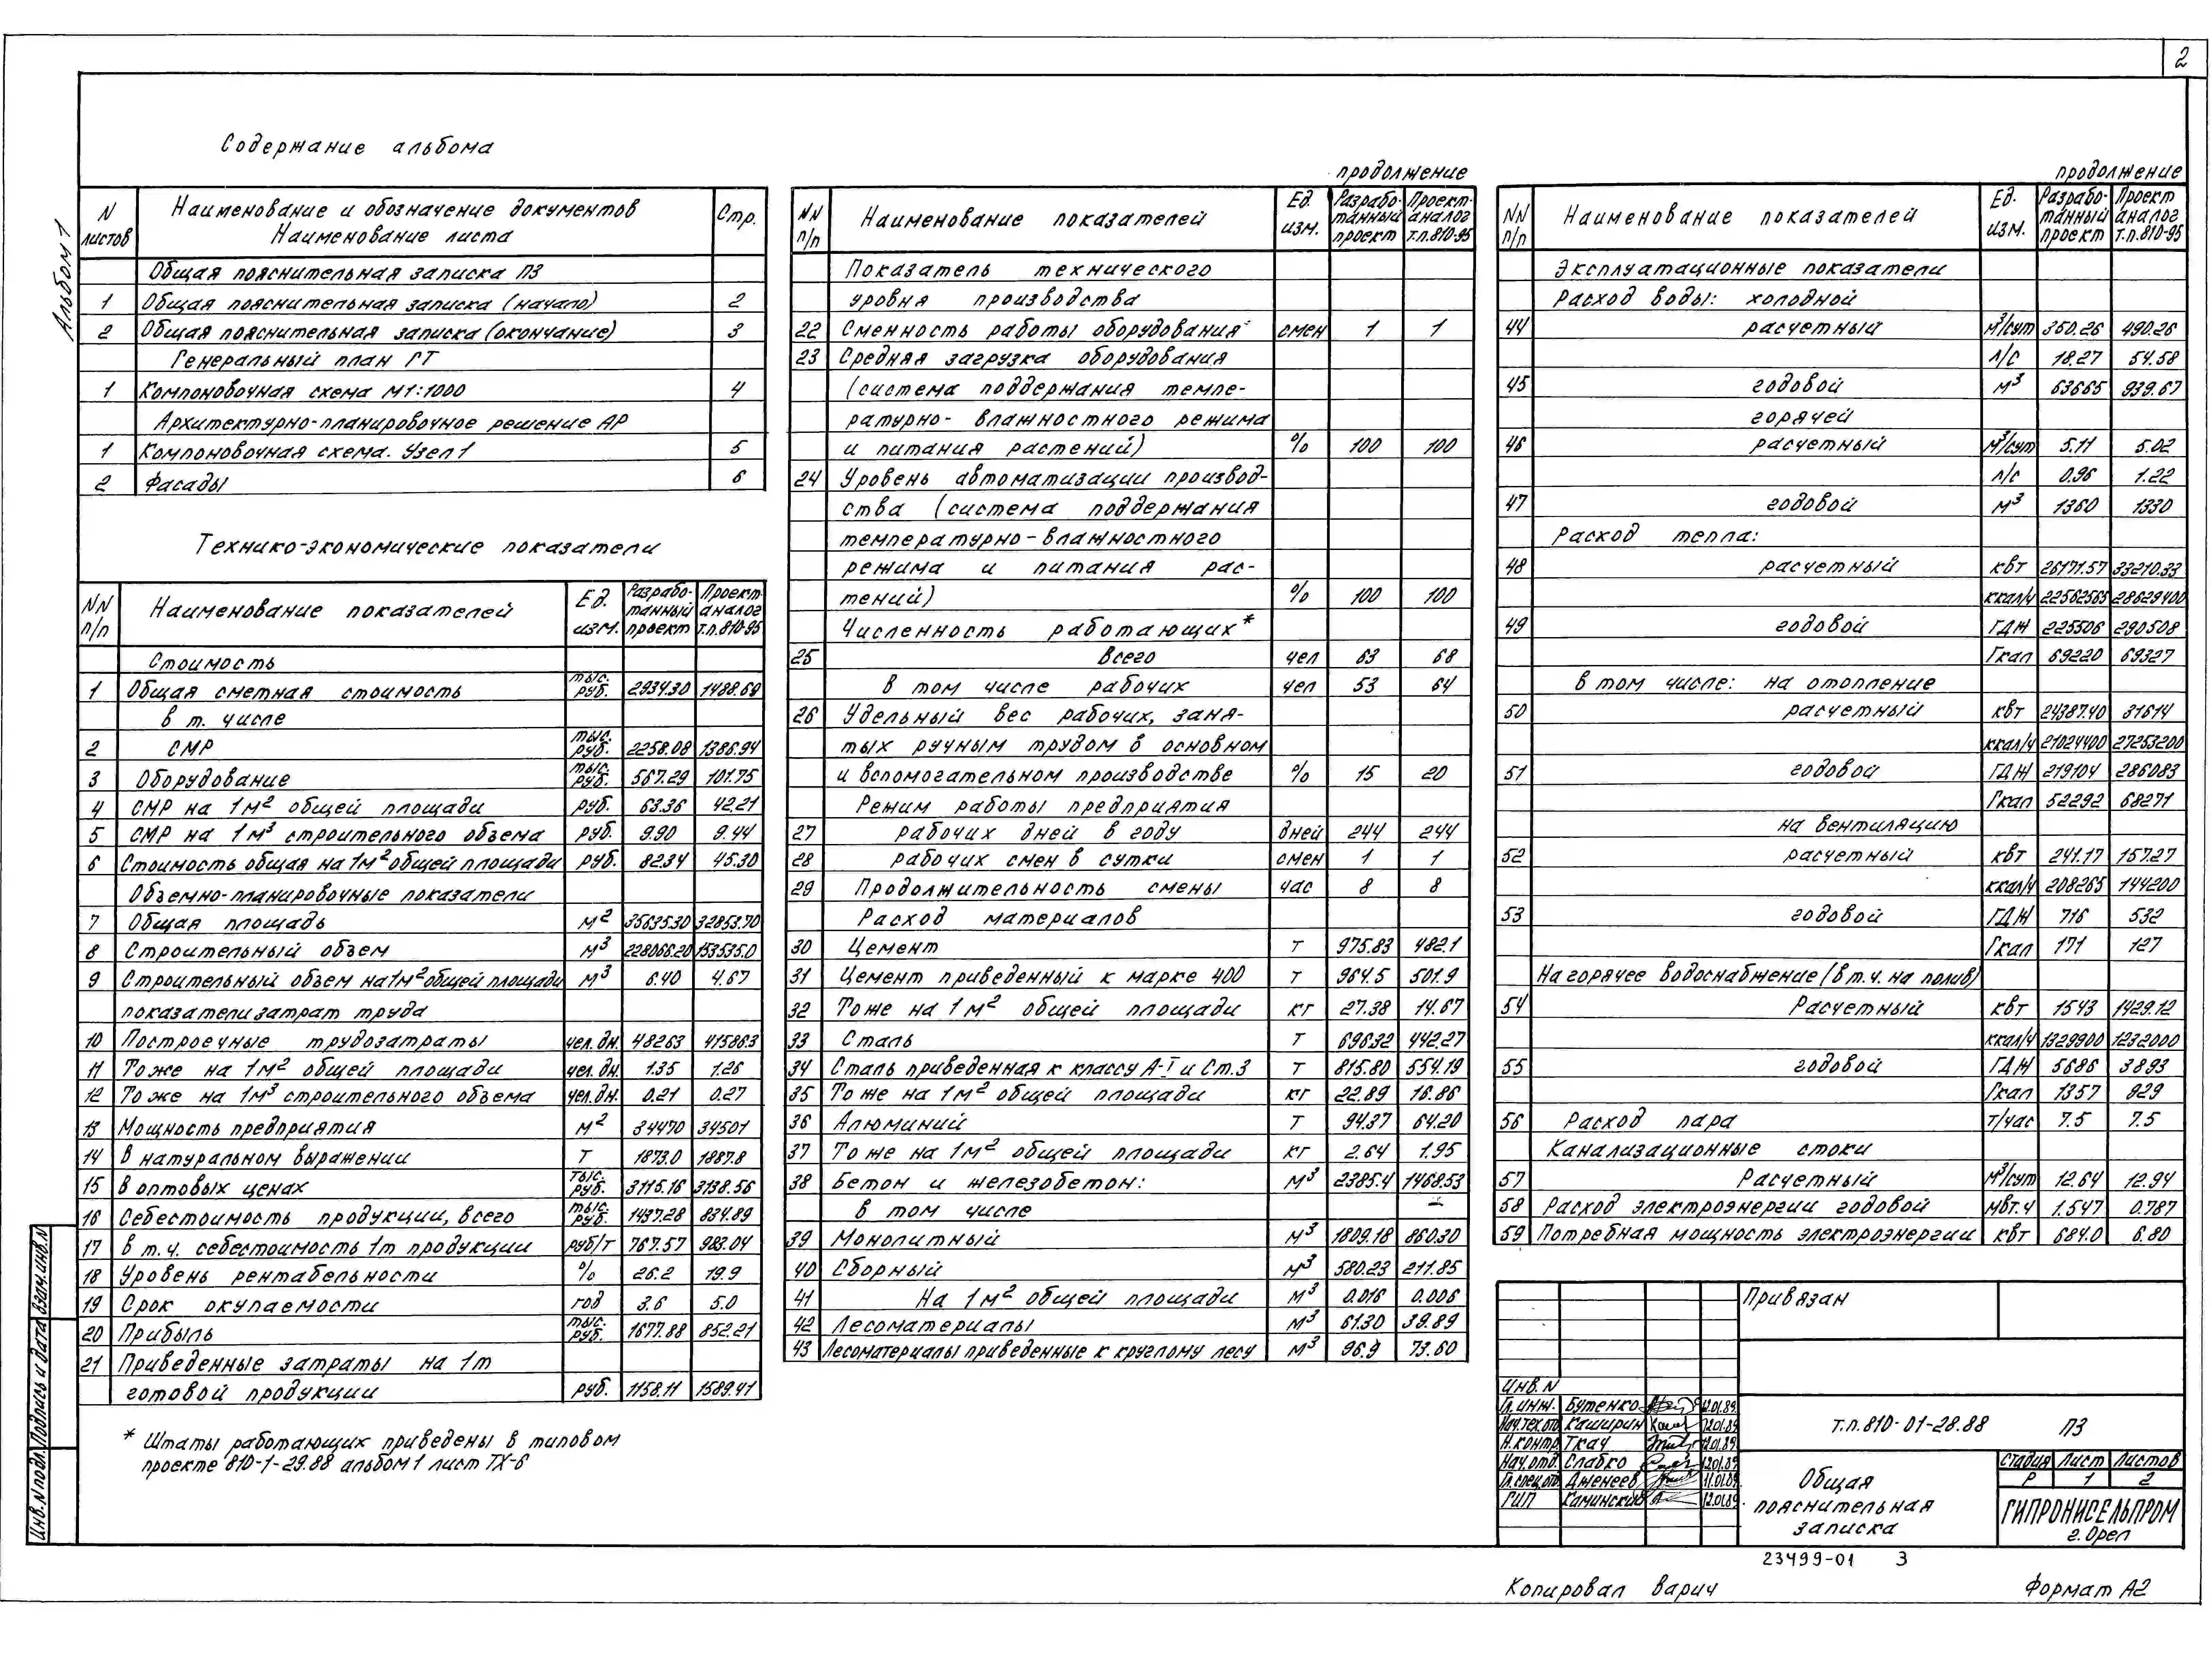 2
Альбом 1
Содержание альбома
N листов | Наименование и обозначение документов Наименование листа | Стр.
Общая пояснительная записка ПЗ
1 Общая пояснительная записка (начало) 2
2 Общая пояснительная записка (окончание) 3
Генеральный план ГТ
1 Компоновочная схема М1:1000 4
Архитектурно-планировочное решение АР
1 Компоновочная схема. Узел 1 5
2 Фасады 6
Технико-экономические показатели
NN п/п | Наименование показателей | Ед. изм. | Разрабо-танный проект | Проект-аналог т.п.810-95
Стоимость
1 Общая сметная стоимость тыс. руб. 2934.30 1488.69
в т. числе
2 СМР тыс. руб. 2258.08 1386.94
3 Оборудование тыс. руб. 567.29 101.75
4 СМР на 1м2 общей площади руб. 63.36 42.21
5 СМР на 1м3 строительного объема руб. 9.90 9.44
6 Стоимость общая на 1м2 общей площади руб. 82.34 45.30
Объемно-планировочные показатели
7 Общая площадь м2 35635.30 32853.70
8 Строительный объем м3 228066.20 153535.0
9 Строительный объем на 1м2 общей площади м3 6.40 4.67
показатели затрат труда
10 Построечные трудозатраты чел.дн. 48263 41586.3
11 То же на 1м2 общей площади чел.дн. 1.35 1.26
12 То же на 1м3 строительного объема чел.дн. 0.21 0.27
13 Мощность предприятия м2 34470 34501
14 в натуральном выражении т 1873.0 1887.8
15 в оптовых ценах тыс. руб. 3115.16 3138.56
16 Себестоимость продукции, всего тыс. руб. 1437.28 834.89
17 в т.ч. себестоимость 1т продукции руб/т 767.57 983.04
18 Уровень рентабельности % 26.2 19.9
19 Срок окупаемости год 3.6 5.0
20 Прибыль тыс. руб. 1677.88 852.21
21 Приведенные затраты на 1т
готовой продукции руб. 1158.11 1589.41
* Штаты работающих приведены в типовом
проекте 810-1-29.88 альбом 1 лист ТХ-6
продолжение
NN п/п | Наименование показателей | Ед. изм. | Разрабо-танный проект | Проект-аналог т.п.810-95
Показатель технического
уровня производства
22 Сменность работы оборудования смен 1 1
23 Средняя загрузка оборудования
(система поддержания темпе-
ратурно- влажностного режима
и питания растений) % 100 100
24 Уровень автоматизации производ-
ства (система поддержания
температурно-влажностного
режима и питания рас-
тений) % 100 100
Численность работающих*
25 всего чел 63 68
в том числе рабочих чел 53 64
26 Удельный вес рабочих, заня-
тых ручным трудом в основном
и вспомогательном производстве % 15 20
Режим работы предприятия
27 рабочих дней в году дней 244 244
28 рабочих смен в сутки смен 1 1
29 Продолжительность смены час 8 8
Расход материалов
30 Цемент т 975.83 482.1
31 Цемент приведенный к марке 400 т 964.5 501.9
32 То же на 1м2 общей площади кг 27.38 14.67
33 Сталь т 696.32 442.27
34 Сталь приведенная к классу А-I и Ст.3 т 815.80 554.19
35 То же на 1м2 общей площади кг 22.89 16.86
36 Алюминий т 94.37 64.20
37 То же на 1м2 общей площади кг 2.64 1.95
38 Бетон и железобетон: м3 2385.4 1468.53
в том числе
39 Монолитный м3 1809.18 860.30
40 Сборный м3 580.23 211.85
41 На 1м2 общей площади м3 0.016 0.006
42 Лесоматериалы м3 61.30 39.89
43 Лесоматериалы приведенные к круглому лесу м3 96.9 73.60
продолжение
NN п/п | Наименование показателей | Ед. изм. | Разрабо-танный проект | Проект аналог т.п.810-95
Эксплуатационные показатели
Расход воды: холодной
44 расчетный м3/сут 350.26 490.26
л/с 18.27 54.58
45 годовой м3 63665 939.67
горячей
46 расчетный м3/сут 5.11 5.02
л/с 0.96 1.22
47 годовой м3 1360 1330
Расход тепла:
48 расчетный квт 26171.57 33210.33
ккал/ч 22562565 28629400
49 годовой ГДЖ 225506 290508
Гкал 69220 69327
в том числе: на отопление
50 расчетный квт 24387.40 31614
ккал/ч 21024400 27253200
51 годовой ГДЖ 219104 286083
Гкал 52292 68271
на вентиляцию
52 расчетный квт 241.17 157.27
ккал/ч 208265 144200
53 годовой ГДЖ 716 532
Гкал 171 127
На горячее водоснабжение (в т.ч. на полив)
54 Расчетный квт 1543 1429.12
ккал/ч 1329900 1232000
55 годовой ГДЖ 5686 3893
Гкал 1357 929
56 Расход пара т/час 7.5 7.5
Канализационные стоки
57 Расчетный м3/сут 12.64 12.94
58 Расход электроэнергии годовой мвт.ч 1.547 0.787
59 Потребная мощность электроэнергии квт 684.0 6.80
Привязан
Инв. N
Гл. инж. Бутенко 12.01.89.
Нач.тех.отд Каширин 12.01.89
Н.контр. Ткач 12.01.89.
Нач.отд. Слабко 12.01.89
Гл.спец.отд Дженеев 11.01.89
ГИП Каминский 12.01.89.
т.п.810-01-28.88 ПЗ
Общая
пояснительная
записка
Стадия Лист Листов
Р 1 2
ГИПРОНИСЕЛЬПРОМ
г. Орел
23499-01 3
Копировал Варич
Формат А2
Инв. N подл. Подпись и дата Взам.инв.N